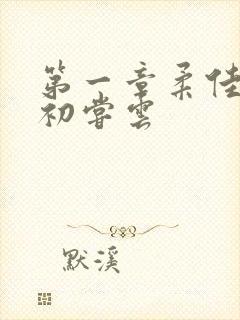 第一章柔佳
初尝雲
默溪